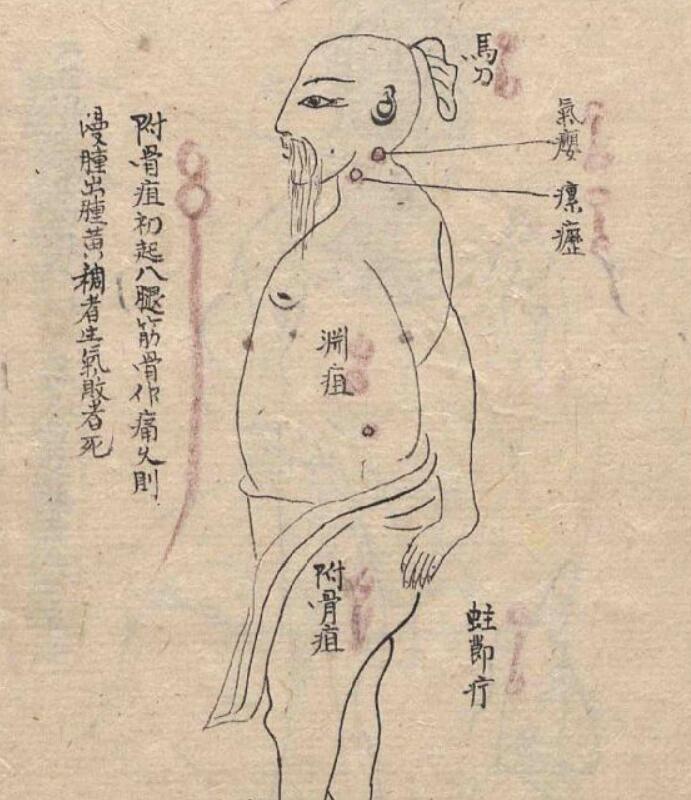 馬刀
氣癭
瘰癧
淵疽
附骨疽
蛀節疔
附骨疽初起八腿筋骨作痛久則
漫腫出膿黃稠者生氣敗者死